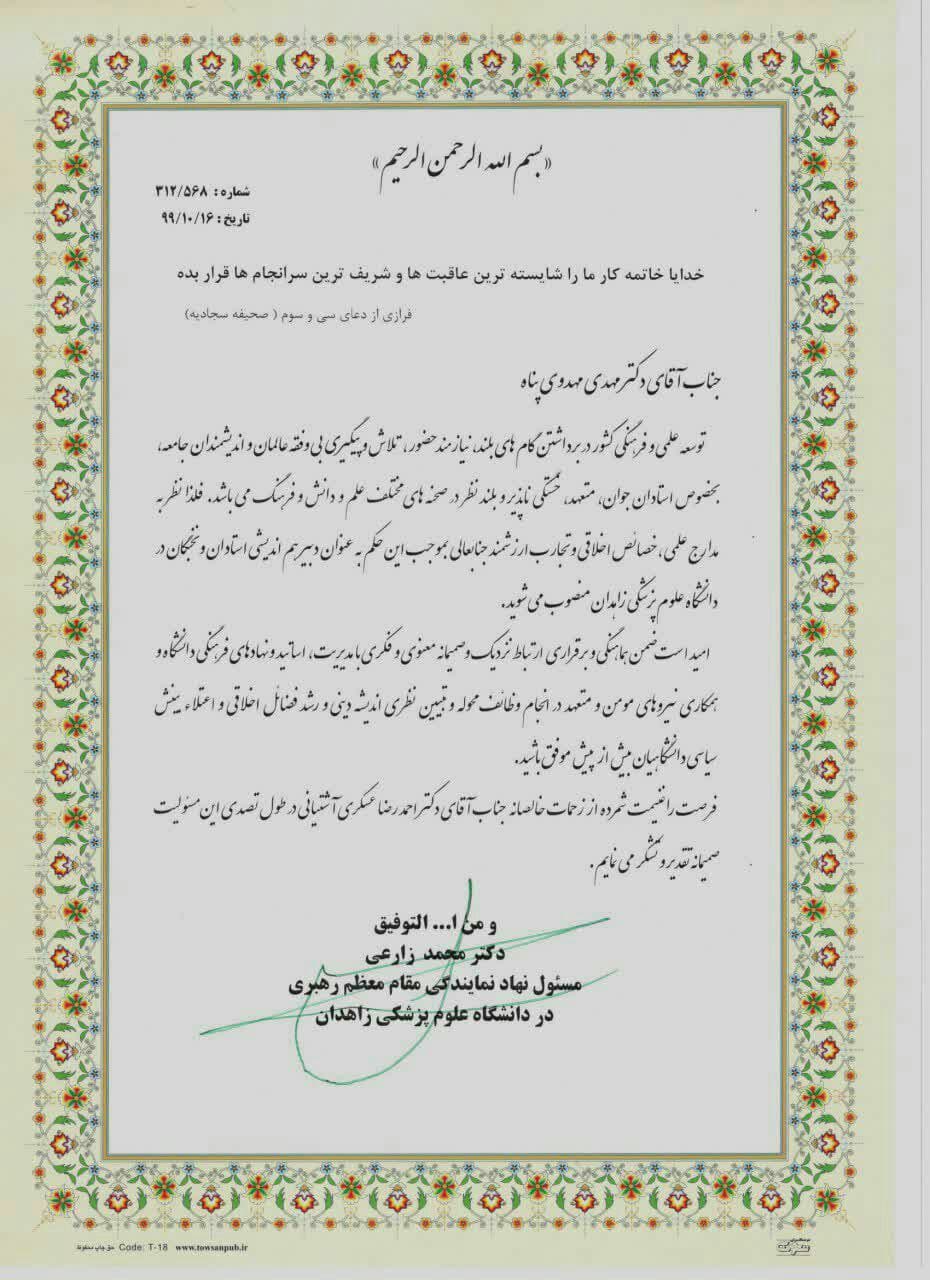 «بسم الله الرحمن الرحیم»
شماره: ۳۱۲/۵۶۸
تاریخ: ۹۹/۱۰/۱۶
خدایا خاتمه کار ما را شایسته ترین عاقبت ها و شریف ترین سرانجام ها قرار بده
فرازی از دعای سی و سوم ( صحیفه سجادیه)
جناب آقای دکتر مهدی مهدوی پناه
توسعه علمی و فرهنگی کشور در برداشتن گام های بلند، نیازمند حضور، تلاش و پیگیری بی وقفه عالمان و اندیشمندان جامعه،
بخصوص استادان جوان، متعهد، خستگی ناپذیر و بلند نظر در صحنه های مختلف علم و دانش و فرهنگ می باشد. فلذا نظر به
مدارج علمی، خصائص اخلاقی و تجارب ارزشمند جنابعالی بموجب این حکم به عنوان دبیر هم اندیشی استادان و نخبگان در
دانشگاه علوم پزشکی زاهدان منصوب می شوید.
امید است ضمن هماهنگی و برقراری ارتباط نزدیک و صمیمانه معنوی و فکری با مدیریت، اساتید و نهادهای فرهنگی دانشگاه و
همکاری نیروهای مومن و متعهد در انجام وظائف محوله و تبیین نظری اندیشه دینی و رشد فضائل اخلاقی و اعتلاء بینش
سیاسی دانشگاهیان بیش از پیش موفق باشید.
فرصت را غنیمت شمرده از زحمات خالصانه جناب آقای دکتر احمدرضا عسکری آشتیانی در طول تصدی این مسئولیت
صمیمانه تقدیر و تشکر می نمایم.
و من ا... التوفیق
دکتر محمد زارعی
مسئول نهاد نمایندگی مقام معظم رهبری
در دانشگاه علوم پزشکی زاهدان
حق چاپ محفوظ Code: T-18 www.towsanpub.ir